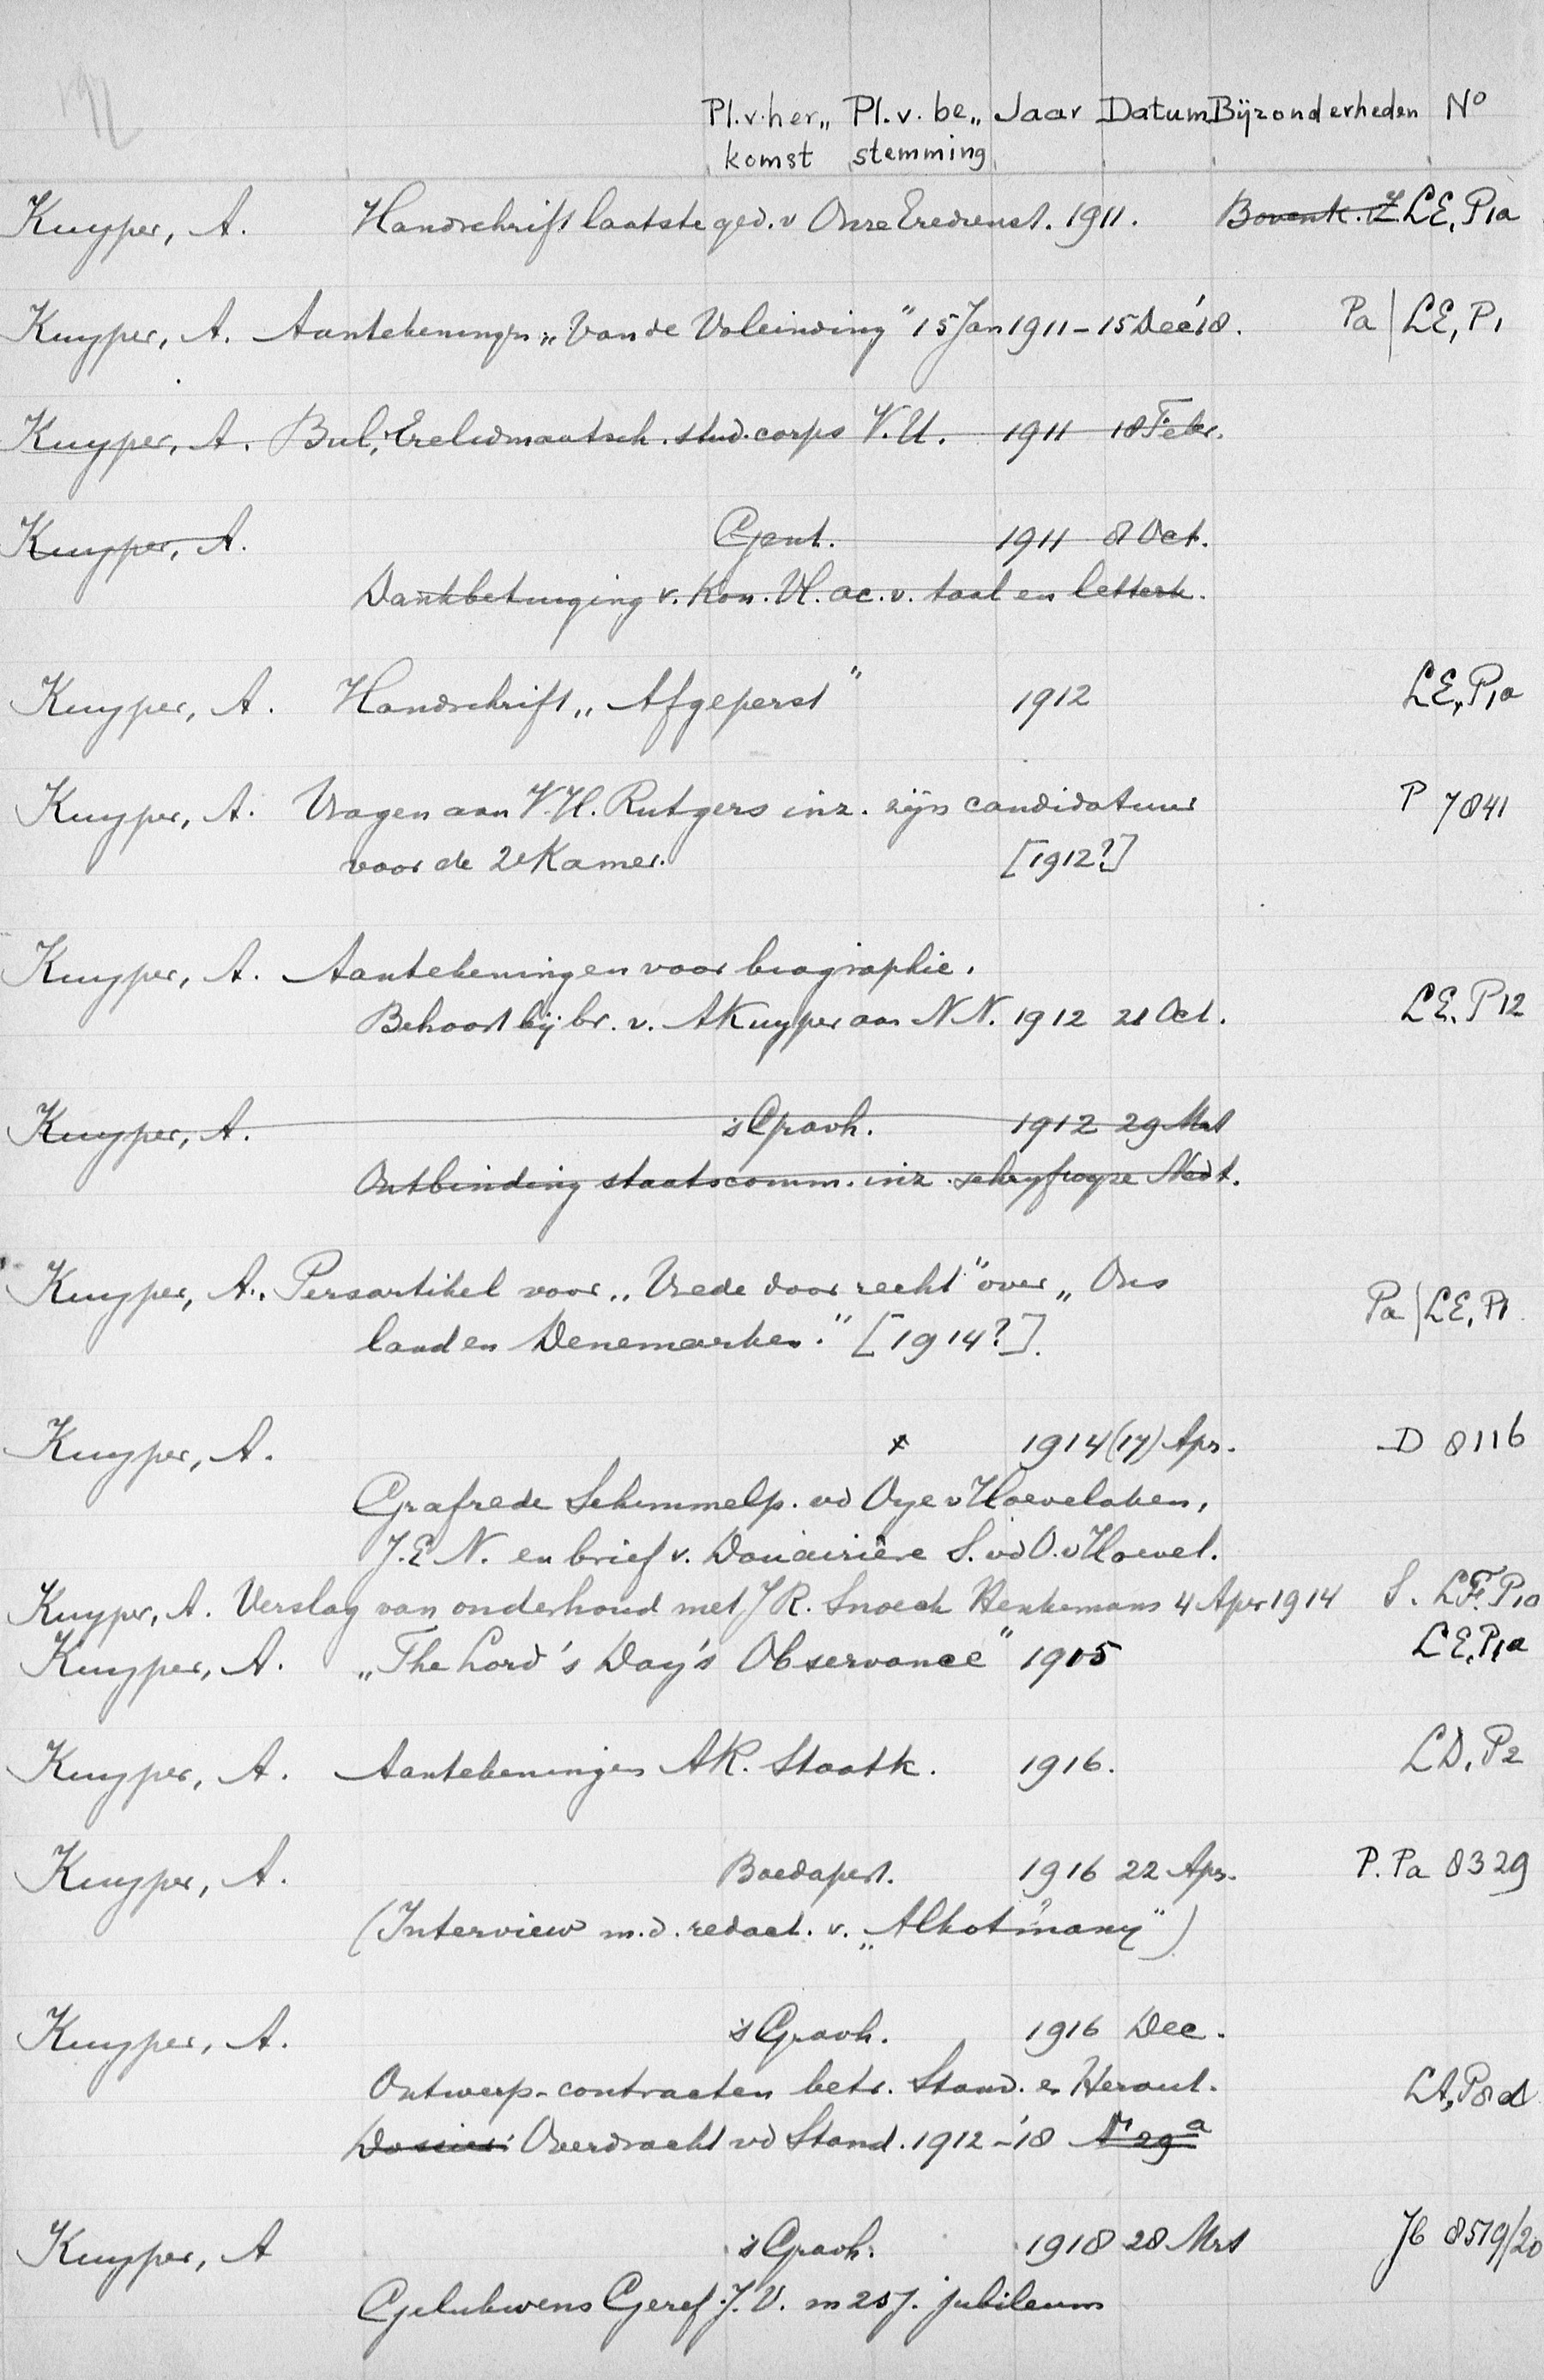 Pl.v.her„ Pl. v. be„ Jaar Datum Bijzonderheden No
komst stemming
Kuyper, A. Handschrift laatste ged. v Onze Eredienst. 1911. Bovenk. LE, P1a
Kuyper, A. Aantekeningen „Van de Voleinding" 15 Jan 1911 - 15 Dec '18. Pa | LE, P1
Kuyper, A. Bul, Erelidmaatsch. stud. corps V.U. 1911 18 Febr.
Kuyper, A. Gent. 1911 8 Oct.
Dankbetuiging v. Kon. Vl. ac. v. taal en letterk.
Kuyper, A. Handschrift „Afgeperst" 1912 LE, P1a
Kuyper, A. Vragen aan V.H. Rutgers inz. zijn candidatuur P 7841
voor de 2e Kamer. [1912?]
Kuyper, A. Aantekeningen voor biographie.
Behoort bij br. v. A Kuyper aan N N. 1912 21 Oct. LE, P12
Kuyper, A. 's Gravh. 1912 29 Mrt
Ontbinding staatscomm. inz. Nedt.
Kuyper, A. Persartikel voor „Vrede door recht" over „Ons
land en Denemarken." [1914?]. Pa | LE, P1.
Kuyper, A. x 1914 (17) Apr. D 8116
Grafrede Schimmelp. vd Oye v Hoevelaken,
J.E.N. en brief v. Douairière S. vd O. v Hoevel.
Kuyper, A. Verslag van onderhoud met J R. Snoeck Henkemans 4 Apr 1914 S. LF. P10
Kuyper, A. „The Lord's Day's Observance" 1915 LE, P1a
Kuyper, A. Aantekeningen AR. Staatk. 1916. LD, P2
Kuyper, A. Boedapest. 1916 22 Apr. P. Pa 8329
(Interview m.d. redact. v. „Alkotmány")
Kuyper, A. 's Gravh. 1916 Dec.
Ontwerp-contracten betr. Stand. en Heraut. LA, P8d
Dossier: Overdracht vd Stand. 1912-'18 Nr 29a
Kuyper, A 's Gravh. 1918 28 Mrt Jb 8519/20
Gelukwens Geref. J.V. m 25 j. jubileum